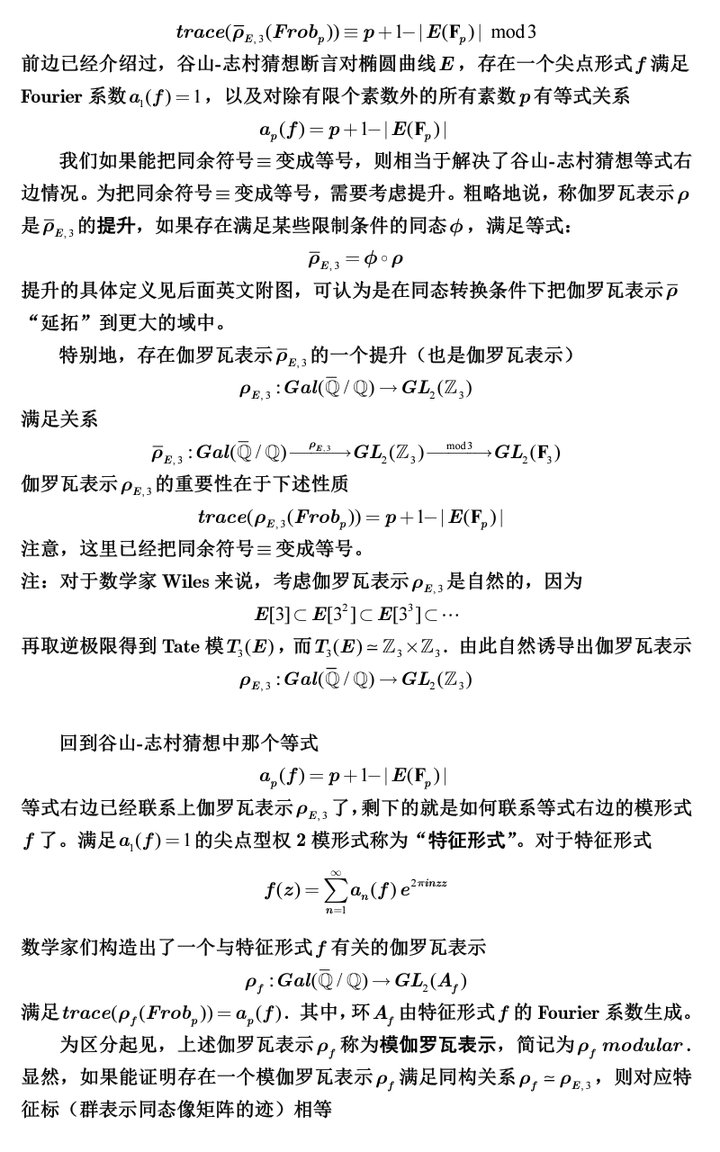 trace(ρ̄_{E,3}(Frob_p)) ≡ p+1−|E(F_p)| mod 3
前边已经介绍过，谷山-志村猜想断言对椭圆曲线 E，存在一个尖点形式 f 满足
Fourier 系数 a₁(f)=1，以及对除有限个素数外的所有素数 p 有等式关系
a_p(f)=p+1−|E(F_p)|
我们如果能把同余符号≡变成等号，则相当于解决了谷山-志村猜想等式右
边情况。为把同余符号≡变成等号，需要考虑提升。粗略地说，称伽罗瓦表示 ρ
是 ρ̄_{E,3} 的提升，如果存在满足某些限制条件的同态 ϕ，满足等式：
ρ̄_{E,3}=ϕ∘ρ
提升的具体定义见后面英文附图，可认为是在同态转换条件下把伽罗瓦表示 ρ̄
“延拓”到更大的域中。
特别地，存在伽罗瓦表示 ρ̄_{E,3} 的一个提升（也是伽罗瓦表示）
ρ_{E,3}:Gal(ℚ̄/ℚ)→GL₂(ℤ₃)
满足关系
ρ̄_{E,3}:Gal(ℚ̄/ℚ) —ρ_{E,3}→ GL₂(ℤ₃) —mod3→ GL₂(F₃)
伽罗瓦表示 ρ_{E,3} 的重要性在于下述性质
trace(ρ_{E,3}(Frob_p))=p+1−|E(F_p)|
注意，这里已经把同余符号≡变成等号。
注：对于数学家 Wiles 来说，考虑伽罗瓦表示 ρ_{E,3} 是自然的，因为
E[3]⊂E[3²]⊂E[3³]⊂⋯
再取逆极限得到 Tate 模 T₃(E)，而 T₃(E)≃ℤ₃×ℤ₃. 由此自然诱导出伽罗瓦表示
ρ_{E,3}:Gal(ℚ̄/ℚ)→GL₂(ℤ₃)
回到谷山-志村猜想中那个等式
a_p(f)=p+1−|E(F_p)|
等式右边已经联系上伽罗瓦表示 ρ_{E,3} 了，剩下的就是如何联系等式右边的模形式
f 了。满足 a₁(f)=1 的尖点型权 2 模形式称为“特征形式”。对于特征形式
f(z)=∑_{n=1}^{∞} a_n(f) e^{2πinzz}
数学家们构造出了一个与特征形式 f 有关的伽罗瓦表示
ρ_f:Gal(ℚ̄/ℚ)→GL₂(A_f)
满足 trace(ρ_f(Frob_p))=a_p(f). 其中，环 A_f 由特征形式 f 的 Fourier 系数生成。
为区分起见，上述伽罗瓦表示 ρ_f 称为模伽罗瓦表示，简记为 ρ_f modular.
显然，如果能证明存在一个模伽罗瓦表示 ρ_f 满足同构关系 ρ_f≃ρ_{E,3}，则对应特
征标（群表示同态像矩阵的迹）相等